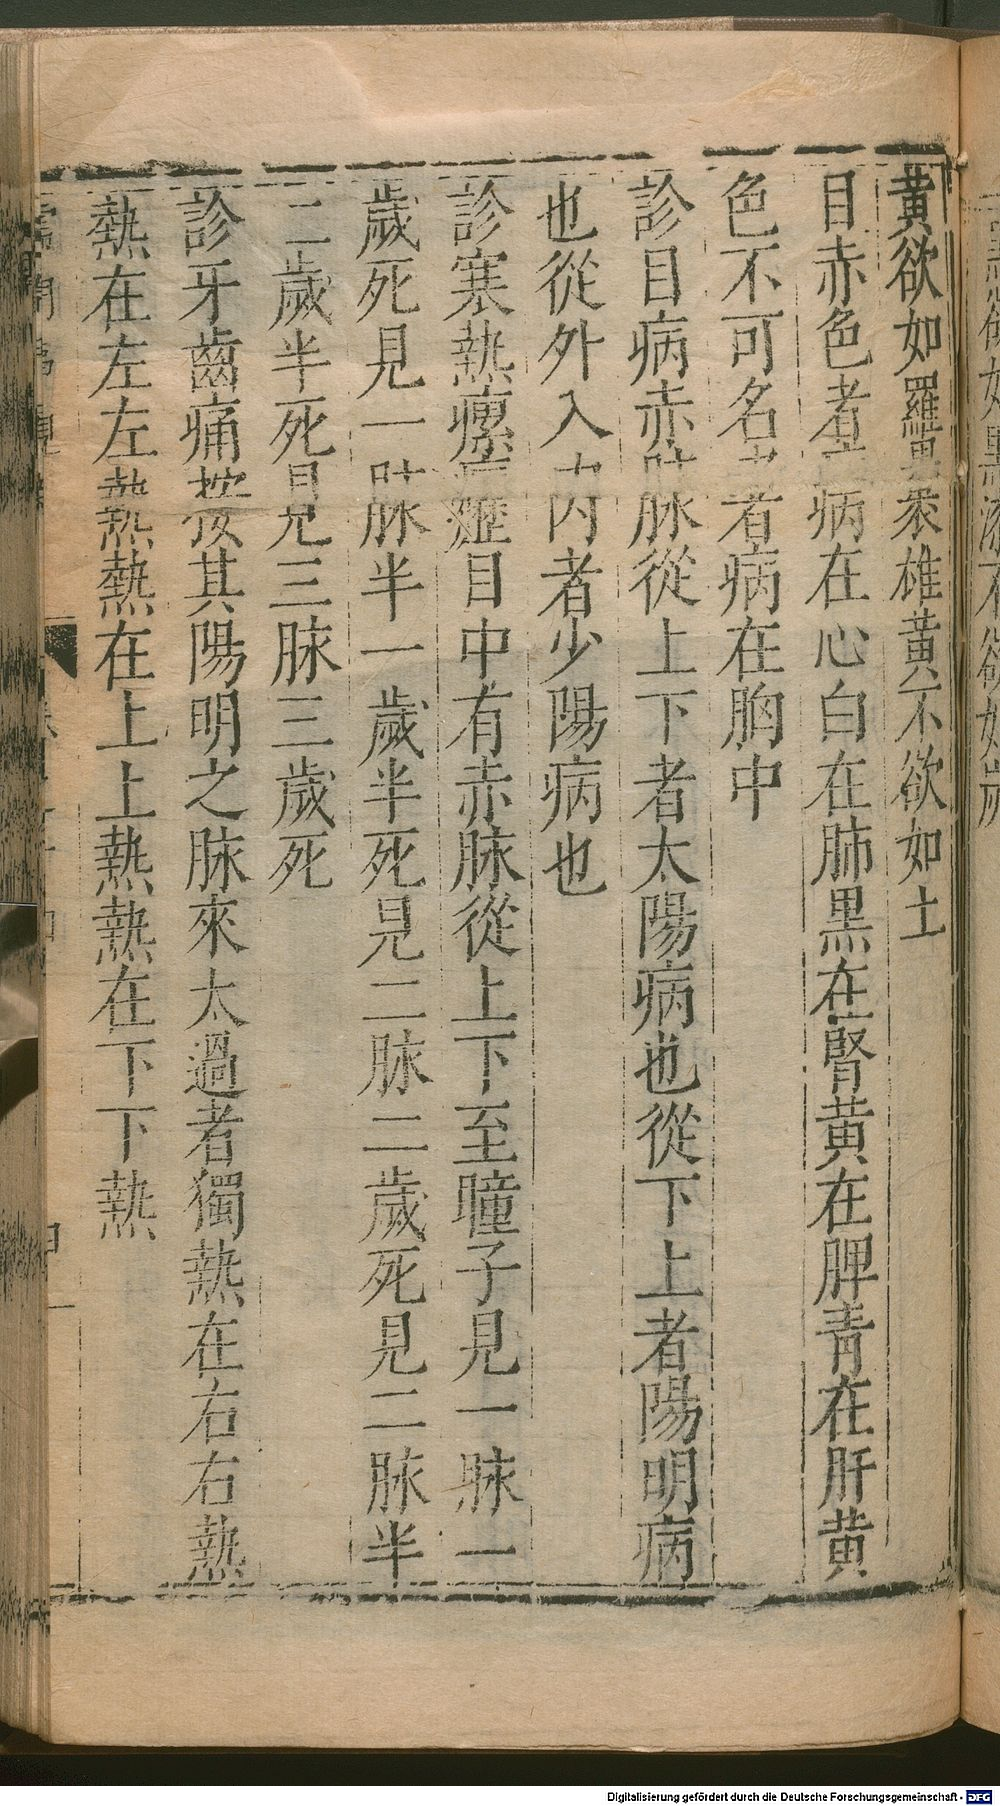 黃欲如羅裹雄黃不欲如土
目赤色者病在心白在肺黑在腎黃在脾青在肝黃
色不可名者病在胸中
診目病赤脉從上下者太陽病也從下上者陽明病
也從外入內者少陽病也
診寒熱瘰癧目中有赤脉從上下至瞳子見一脉一
歲死見一脉半一歲半死見二脉二歲死見二脉半
二歲半死見三脉三歲死
診牙齒痛按其陽明之脉來太過者獨熱在右右熱
熱在左左熱熱在上上熱熱在下下熱
Digitalisierung gefördert durch die Deutsche Forschungsgemeinschaft - DFG